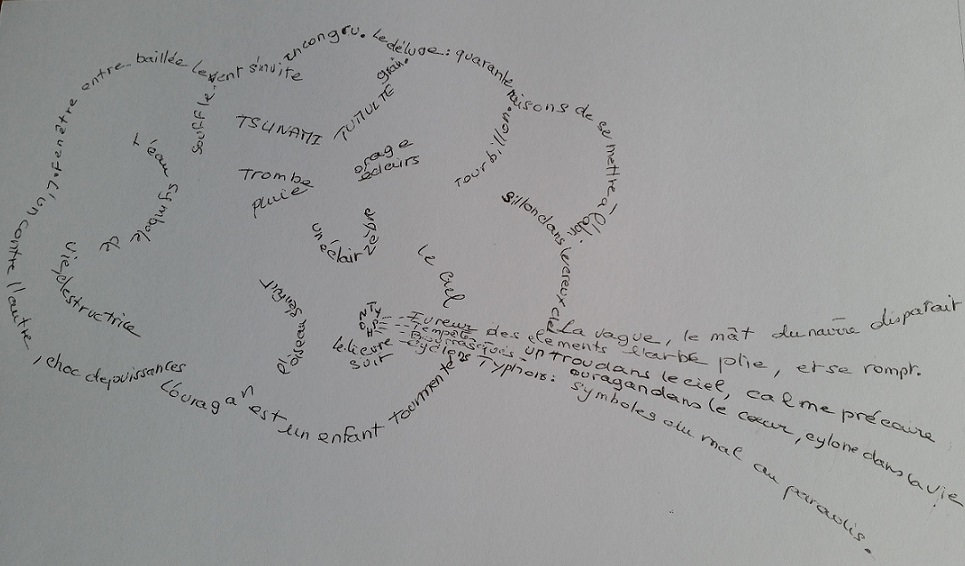 l'un contre l'autre, choc de puissances
Fenêtre entre baillée le vent s'invite
souffle.
incongru. Le déluge : quarante raisons de se mettre à l'abri
grain.
TUMULTE
TSUNAMI
Trombe
pluie
orage
éclairs
Tourbillon.
Sillon dans le creux
L'eau symbole
de
vie, destructrice
un éclair
zèbre
le ciel
l'oiseau
s'enfuit
le lièvre
suit
L'ouragan est un enfant tourmenté
La vague, le mât du navire disparait
Fureur des éléments l'arbre plie, et se rompt.
Tempête
un trou dans le ciel, calme précaire
ouragan dans le cœur, cylone dans la vie
cyclone Typhon : symboles du mal au paradis.